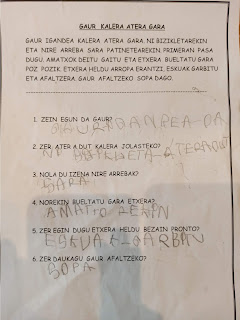 GAUR KALERA ATERA GARA
GAUR IGANDEA KALERA ATERA GARA NI BIZIKLETAREKIN
ETA NIRE ARREBA SARA PATINETEAREKIN PRIMERAN PASA
DUGU, AMATXOK DEITU GAITU ETA ETXERA. BUELTATU GARA
POZ POZIK ETXERA HELDU ARROPA ERANTZI, ESKUAK GARBITU
ETA AFALTZERA. GAUR AFALTZEKO SOPA DAGO.
1. ZEIN EGUN DA GAUR?
GAUR IGANDEA DA
2. ZER ATERA DUT KALERA JOLASTEKO?
NI BIZIKLETA ATERA DUT
3. NOLA DU IZENA NIRE ARREBAK?
SARA
4. NOREKIN BUELTATU GARA ETXERA?
AMATXO
5. ZER EGIN DUGU ETXERA HELDU BEZAIN PRONTO?
ESKUAK GARBI
6. ZER DAUKAGU GAUR AFALTZEKO?
SOPA